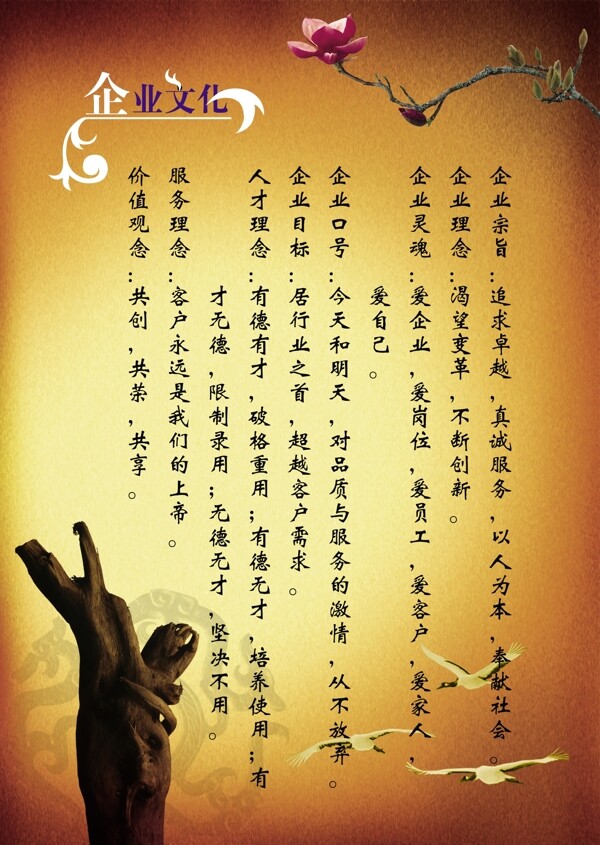 企业文化
企业宗旨：追求卓越，真诚服务，以人为本，奉献社会。
企业理念：渴望变革，不断创新。
企业灵魂：爱企业，爱岗位，爱员工，爱客户，爱家人，
爱自己。
企业口号：今天和明天，对品质与服务的激情，从不放弃。
企业目标：居行业之首，超越客户需求。
人才理念：有德有才，破格重用；有德无才，培养使用；有
才无德，限制录用；无德无才，坚决不用。
服务理念：客户永远是我们的上帝。
价值观念：共创，共荣，共享。